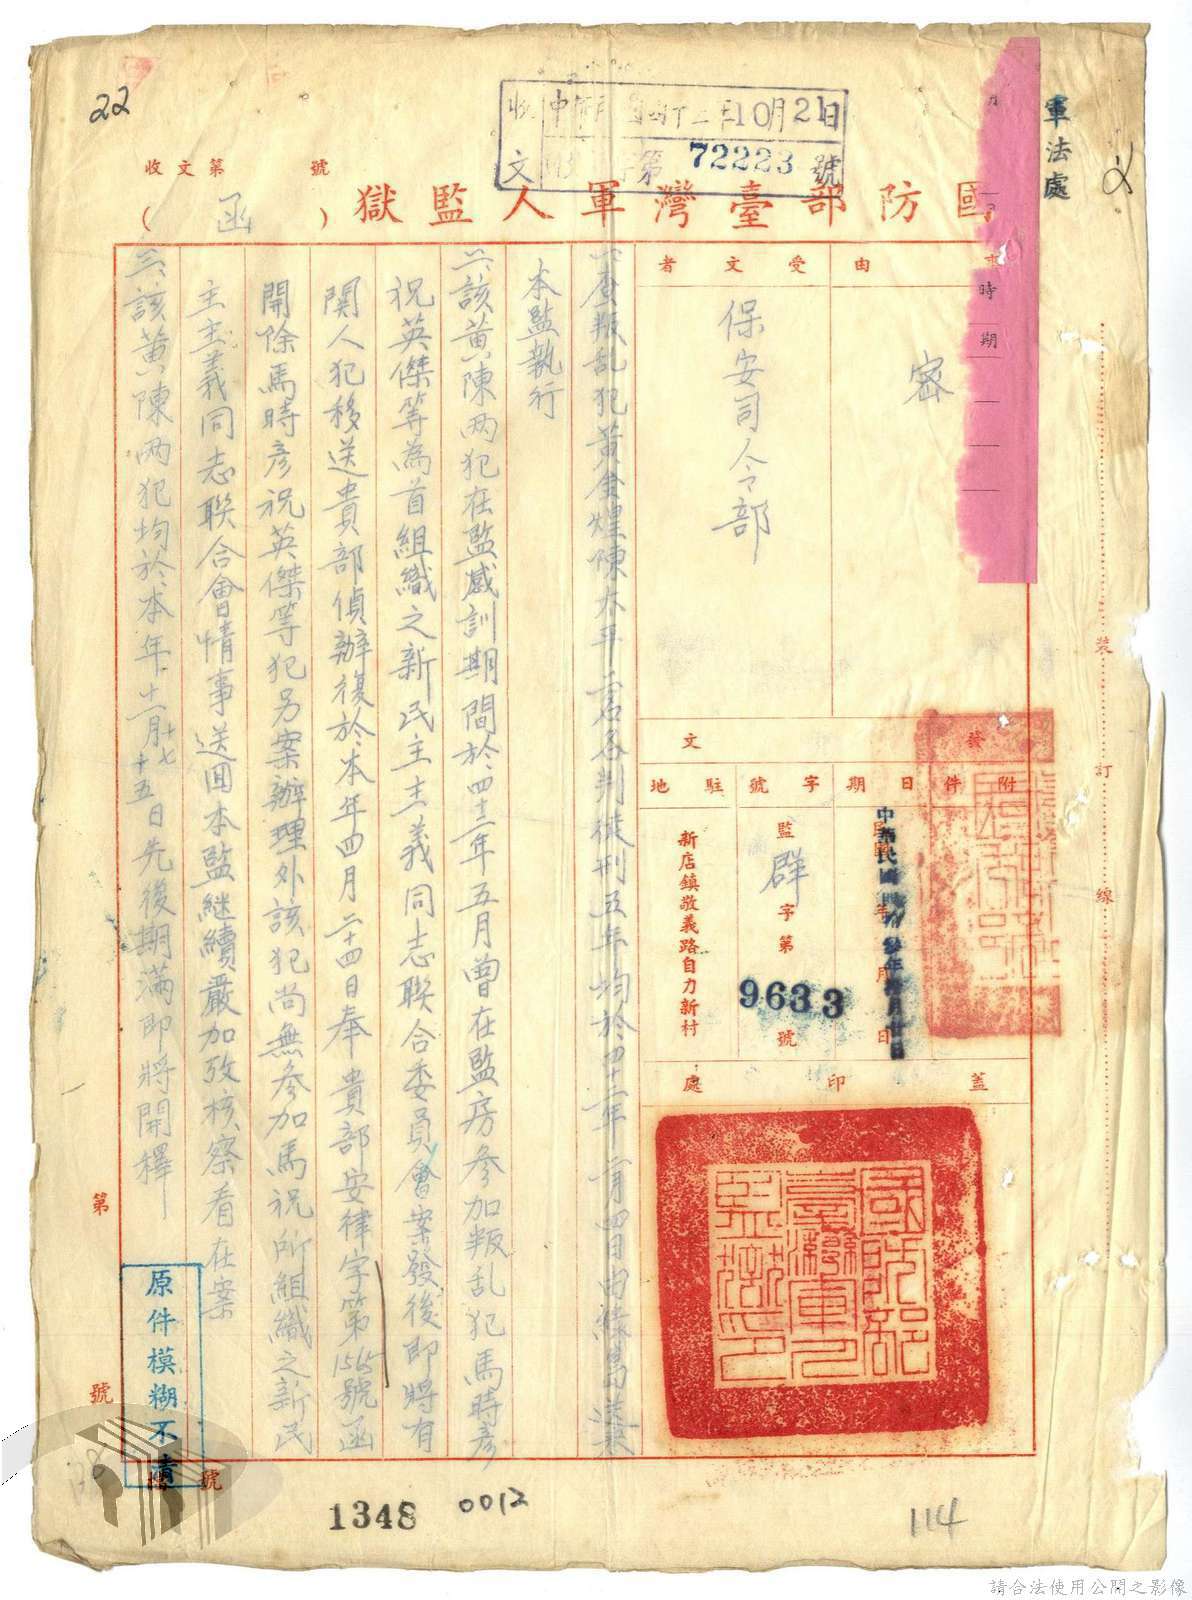 22
軍法處
收
中華民國四十二年10月21日
文
第72223號
收文第 號
國防部臺灣軍人監獄
( 函 )
由
密
受文者
保安司令部
時期
發文
附件
日期
中華民國四拾參年拾月廿日
字號
監群字第9633號
駐地
新店鎮敬義路自力新村
蓋印處
國防部臺灣軍人監獄印
一、查叛乱犯黃金煌陳太平二名各判徒刑五年均於四十二年二月四日由綠島送來
本監執行
二、該黃陳兩犯在監感訓期間於四十二年五月曾在監房參加叛乱犯馬時彥
祝英傑等為首組織之新民主主義同志聯合委員會案發後即將有
関人犯移送貴部偵辦復於本年四月二十四日奉 貴部安律字第1565號函
開除馬時彥祝英傑等犯另案辦理外該犯尚無參加馬祝所組織之新民
主主義同志聯合會情事送回本監継續嚴加攷核察看在案
三、該黃陳兩犯均於本年十一月十七十五日先後期滿即將開釋
裝
訂
線
第
號
原件模糊不清
檔號
1348
0012
114
請合法使用公開之影像